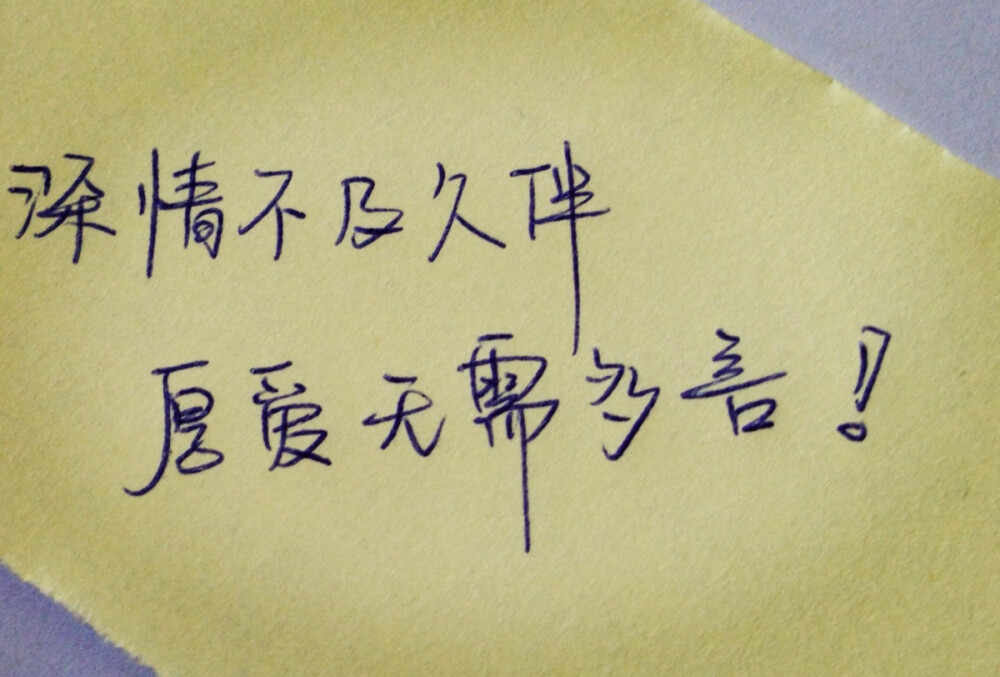 深情不及久伴
厚爱无需多言!